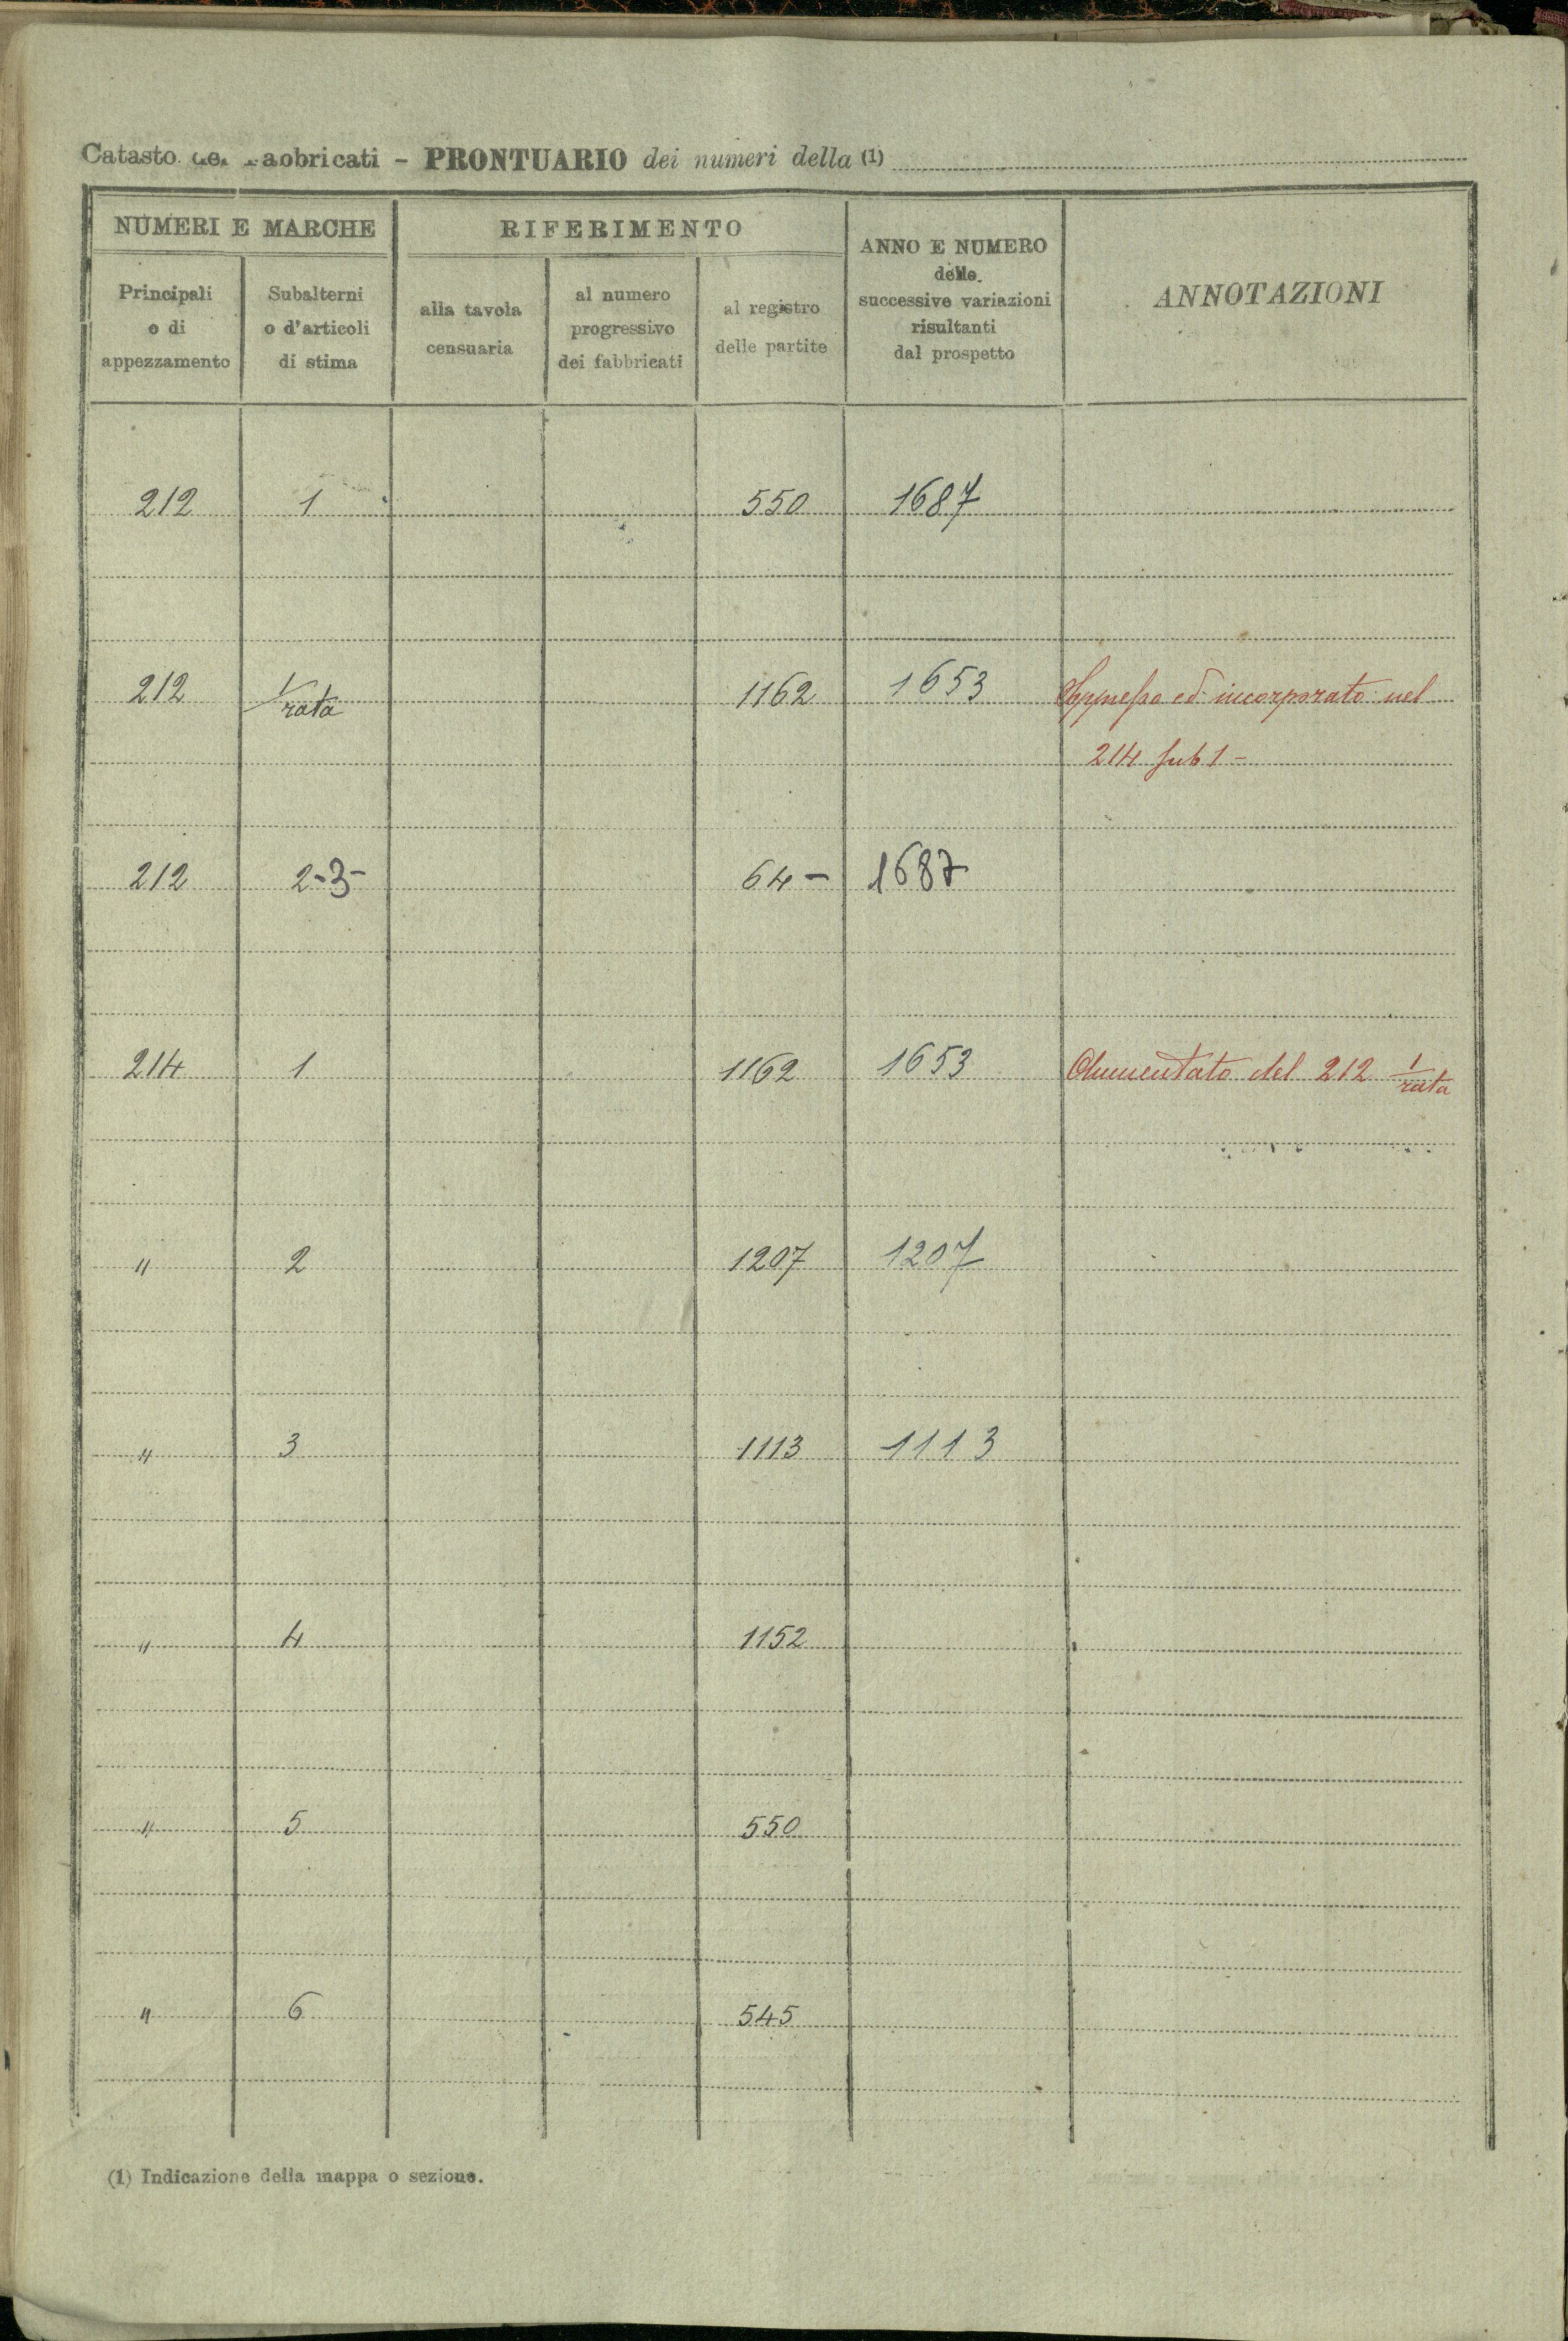 Catasto dei Fabbricati - PRONTUARIO dei numeri della (1)
NUMERI E MARCHE
RIFERIMENTO
ANNO E NUMERO
delle
successive variazioni
risultanti
dal prospetto
ANNOTAZIONI
Principali
o di
appezzamento
Subalterni
o d'articoli
di stima
alla tavola
censuaria
al numero
progressivo
dei fabbricati
al registro
delle partite
212 1 550 1687
212 1/rata 1162 1653 ed incorporato nel
214 sub 1 -
212 2-3- 64 - 1687
214 1 1162 1653 Aumentato del 212 1/rata
" 2 1207 1207
" 3 1113 1113
" 4 1152
" 5 550
" 6 545
(1) Indicazione della mappa o sezione.